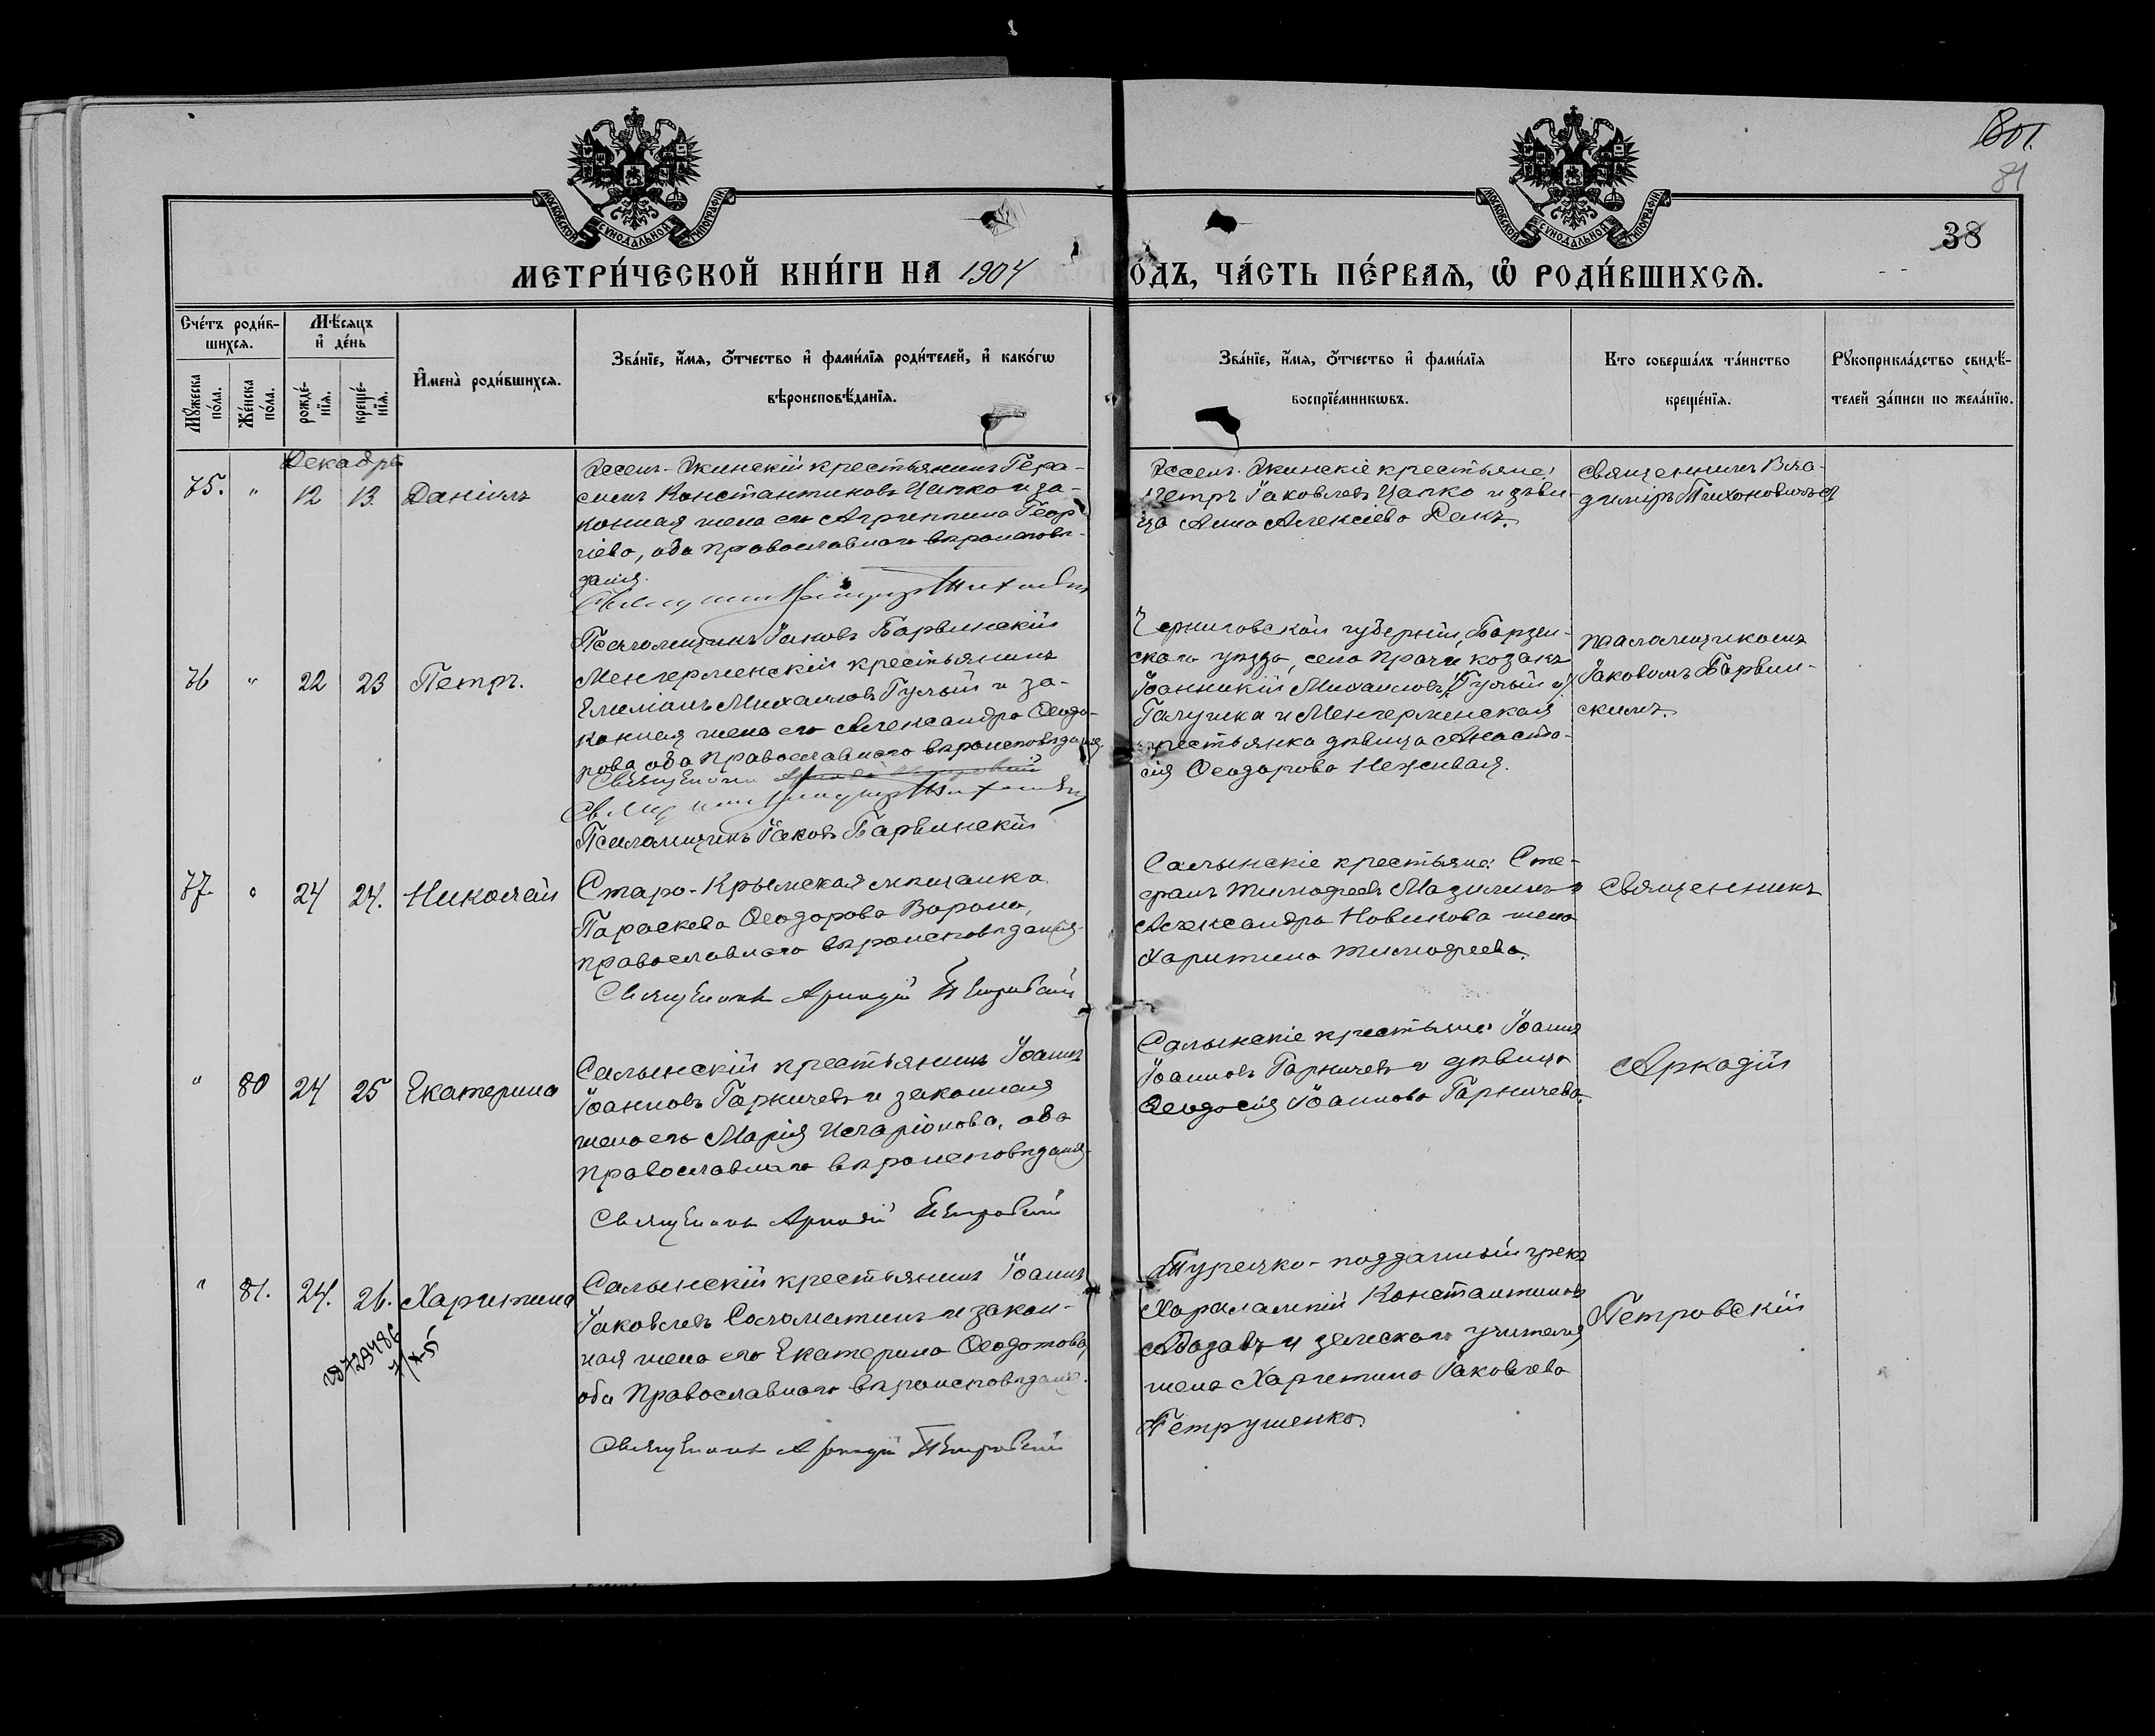 801.
81
38
МОСКОВСКОЙ СУНОДАЛЬНОЙ ТИПОГРАФІИ
МОСКОВСКОЙ СУНОДАЛЬНОЙ ТИПОГРАФІИ
МЕТРИ́ЧЕСКОЙ КНИ́ГИ НА 1904
ОДЪ, ЧА́СТЬ ПЕ́РВАѦ, Ѡ РОДИ́ВШИХСѦ.
Счетъ роди́в-
шихсѧ.
Мꙋжеска
по́ла.
Же́нска
по́ла.
Мѣ́сяцъ
и҆ де́нь
рожде́-
нїѧ.
креще́-
нїѧ.
И҆мена̀ роди́вшихсѧ.
Зва́нїе, и҆́мѧ, ѻ҆́тчество и҆ фами́лїѧ роди́телей, и҆ како́гѡ
вѣроисповѣ́данїѧ.
Зва́нїе, и҆́мѧ, ѻ҆́тчество и҆ фами́лїѧ
воспрїе́мникѡвъ.
Кто соверша́лъ та́инство
креще́нїѧ.
Рꙋкоприкла́дство свидѣ́-
телей за́писи по жела́нїю.
Декабрь
75. " 12 13. Даніилъ
крестьянинъ Гера-
симъ Константиновъ Цапко и за-
конная жена его Агриппина Геор-
гіева, оба православнаго вѣроисповѣ-
данія.
Псаломщикъ Іаковъ Барвинскій
крестьяне:
Петръ Іаковлевъ Цапко и дѣви-
ца Анна Алексіева
Священникъ Вла-
диміръ Тихоновичъ
76 " 22 23 Петръ.
Менгерменскій крестьянинъ
Михаиловъ Гулый и за-
конная жена его Александра Ѳеодо-
рова, оба православнаго вѣроисповѣданія
Священникъ
Псаломщикъ Іаковъ Барвинскій
Черниговской губерніи, Борзен-
скаго уѣзда, села Прачи козакъ
Іоанникій Михаиловъ Гулый
Галушка и Менгерменская
крестьянка дѣвица Анаста-
сія Ѳеодорова Неживая.
псаломщикомъ
Іаковомъ Барвин-
скимъ.
77. " 24 24. Николай
Старо-Крымская мѣщанка
Параскева Ѳеодорова Ворона,
православнаго вѣроисповѣданія.
Священникъ Аркадій Петровскій
Салынскіе крестьяне: Сте-
фанъ Тимофеевъ и
Александра Новикова жена
Харитина Тимофеева.
Священникъ
" 80 24 25 Екатерина
Салынскій крестьянинъ Іоаннъ
Іоанновъ Гаркичевъ и законная
жена его Марія Иларіонова, оба
православнаго вѣроисповѣданія.
Священникъ Аркадій Петровскій
Салынскіе крестьяне: Іоаннъ
Іоанновъ Гаркичевъ и дѣвица
Ѳеодосія Іоаннова Гаркичева.
Аркадій
" 81. 24. 26. Харитина
Салынскій крестьянинъ Іоаннъ
Іаковлевъ Соломатинъ и закон-
ная жена его Екатерина Ѳеодотова,
оба Православнаго вѣроисповѣданія.
Священникъ Аркадій Петровскій
Турецко-подданный грекъ
Харалампій Константиновъ
и земскаго учителя
жена Харитина Іаковлева
Петрушенко.
Петровскій